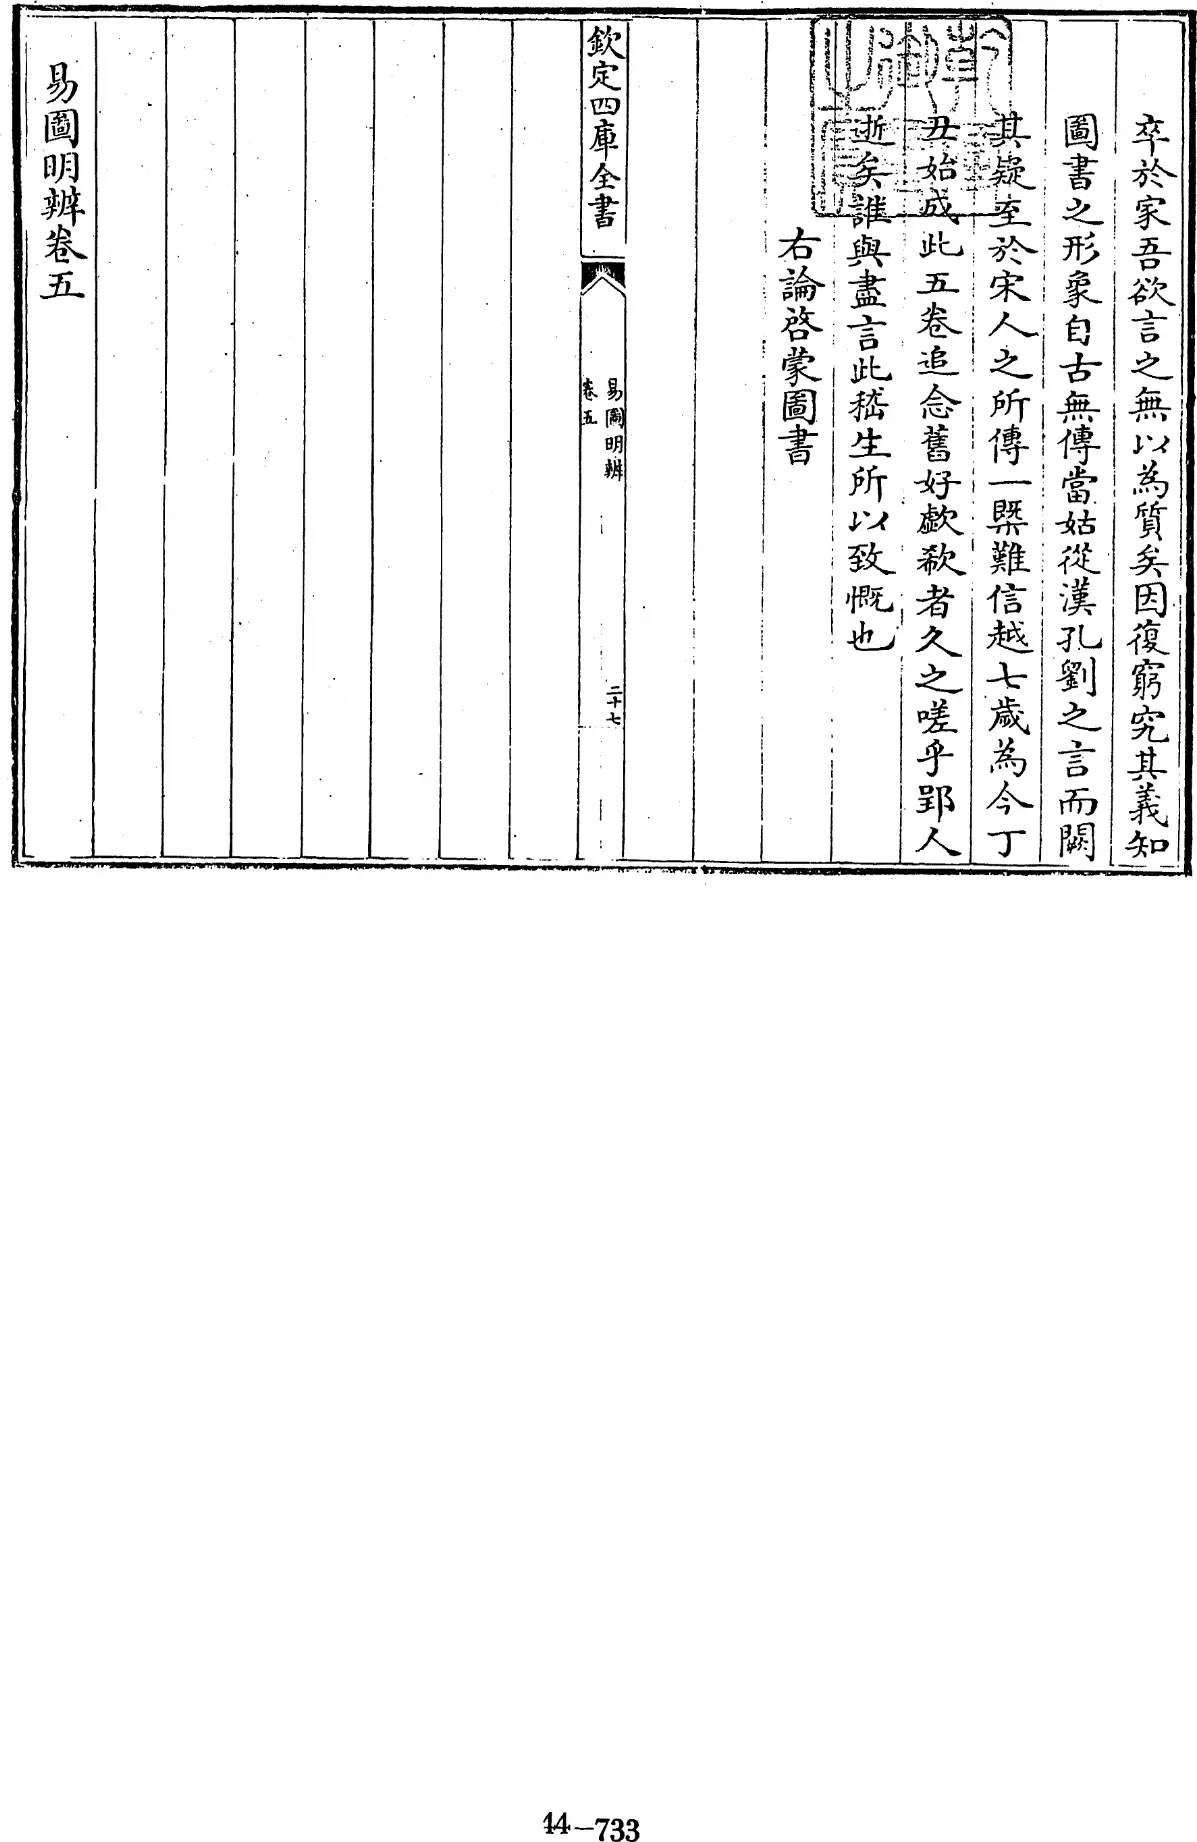 卒於家吾欲言之無以為質矣因復窮究其義知
圖書之形象自古無傳當姑從漢孔劉之言而闕
其疑至於宋人之所傳一槩難信越七歲為今丁
丑始成此五卷追念舊好歔欷者久之嗟乎郢人
逝矣誰與盡言此嵇生所以致慨也
右論啓蒙圖書
欽定四庫全書
易圖明辨
卷五
二十七
易圖明辨卷五
44-733